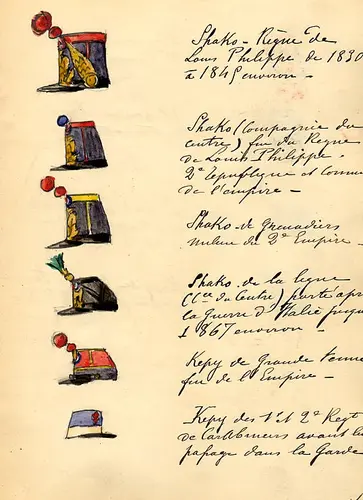 Shako - Règne de
Louis Philippe de 1830
à 1845 environ -
Shako (Compagnie du
centre) fin du Règne
de Louis Philippe.
2e République et Comm
de l'empire -
Shako de Grenadiers
milieu du 2e Empire -
Shako de la ligne
(Cie du Centre) porté apr
la Guerre d'Italie jusqu
1867 environ -
Kepy de Grande tenue
fin de l'Empire -
Kepy des 1r et 2e Regt
de Carabiniers avant le
passage dans la Garde